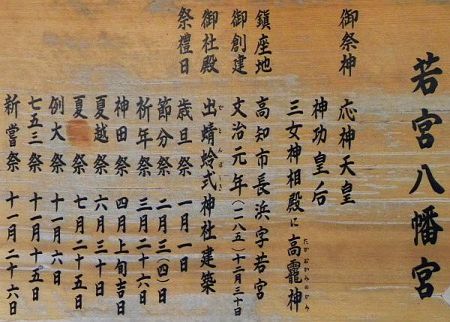 若宮八幡宮
御祭神 応神天皇
神功皇后
三女神相殿に高龗神
鎮座地 高知市長浜字若宮
御創建 文治元年(一一八五)十二月三十日
御社殿 出蜻蛉式神社建築
祭禮日 歳旦祭 一月一日
節分祭 二月三(四)日
祈年祭 三月二十六日
神田祭 四月上旬吉日
夏越祭 六月三十日
夏祭 七月二十五日
例大祭 十一月六日
七五三祭 十一月十五日
新嘗祭 十一月二十六日